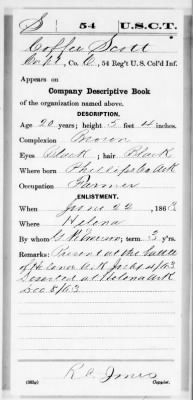 S 54 U.S.C.T.
Coffee Scott
Corp'l, Co. C, 54 Reg't U.S. Col'd Inf.
Appears on
Company Descriptive Book
of the organization named above.
DESCRIPTION.
Age 20 years; height 5 feet 4 inches.
Complexion Brown
Eyes Black; hair Black
Where born Phillips Co Ark
Occupation Farmer
ENLISTMENT.
When June 22, 1863
Where Helena
By whom term 3 y'rs.
Remarks: Present at the battle
of Helena Ark July 4/63
Deserted at Helena Ark
Dec 8/63
R.C. Jones
Copyist.